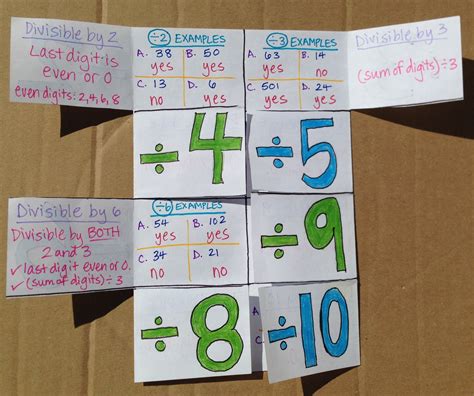 Divisible by 2
Last digit is
even or 0
even digits: 2, 4, 6, 8
÷2 EXAMPLES
A. 38 B. 50
yes yes
C. 13 D. 6
no yes
÷3 EXAMPLES
A. 63 B. 14
yes no
C. 501 D. 24
yes yes
Divisible by 3
(sum of digits)÷3
÷4
÷5
Divisible by 6
Divisible by BOTH
2 and 3
✓ last digit even or 0.
✓ (sum of digits)÷3
÷6 EXAMPLES
A. 54 B. 102
yes yes
C. 34 D. 21
no no
÷9
÷8
A.
C.
÷10